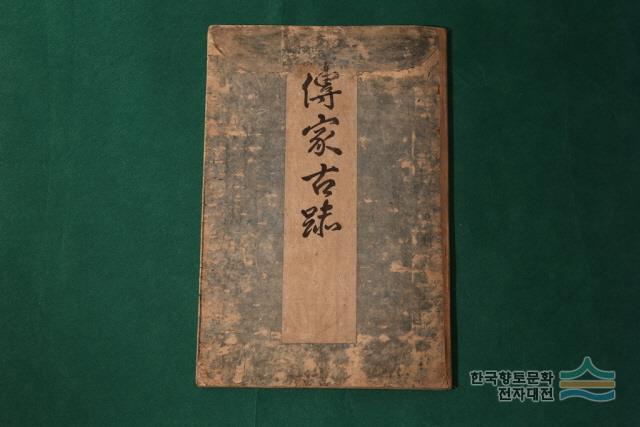 傳家古蹟
한국향토문화
전자대전